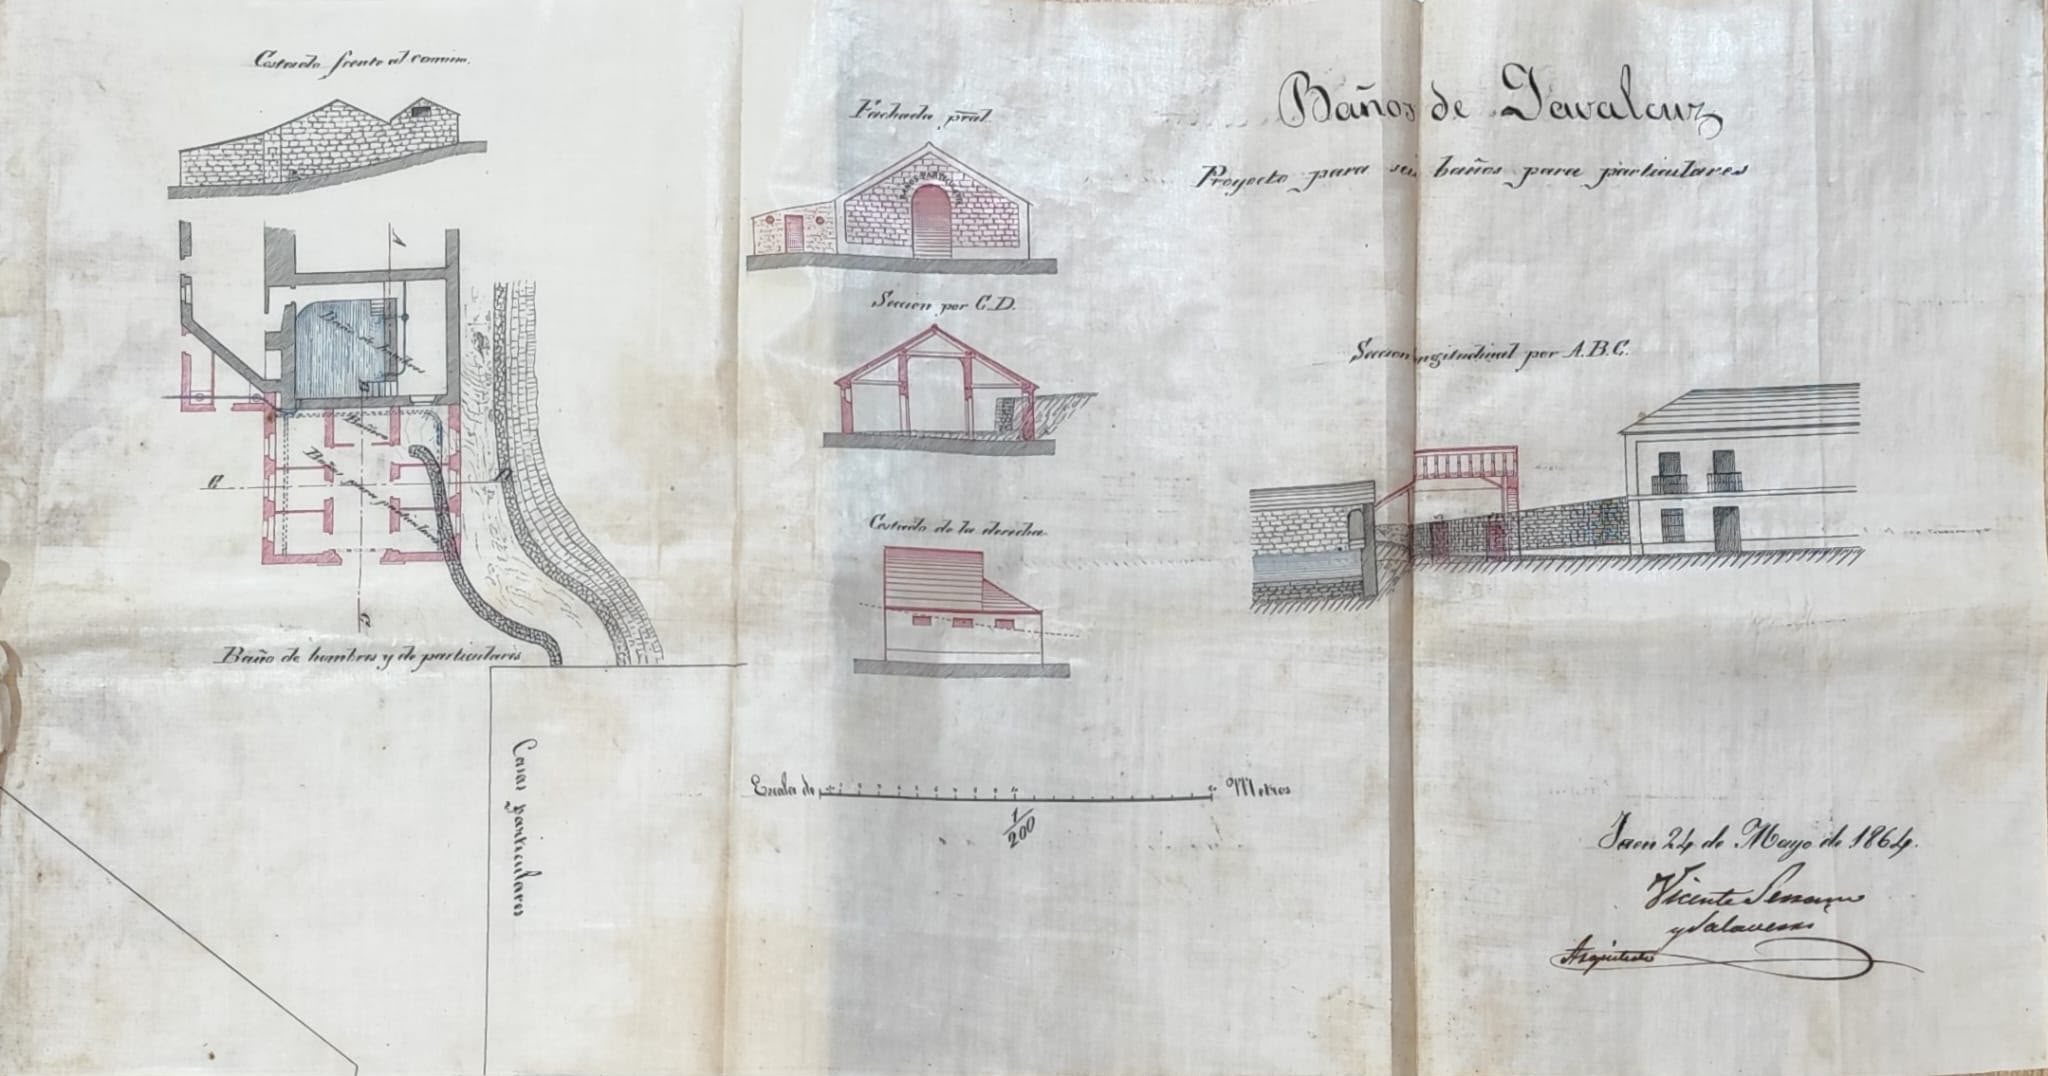 Baños de Javalcuz
Proyecto para seis baños para particulares
Costado frente al camino.
Fachada pral.
BAÑOS PARTICULARES
Seccion por C.D.
Costado de la derecha
Seccion longitudinal por A.B.C.
A
Baño de hombres
B
Baños para particulares
C
Baño de hombres y de particulares
Casas particulares
Escala de Metros
1/200
Jaen 24 de Mayo de 1864.
Vicente Serrano
y Salaverri
Arquitecto